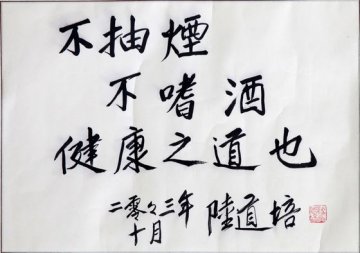 不抽煙
不嗜酒
健康之道也
二零々三年
十月
陸道培